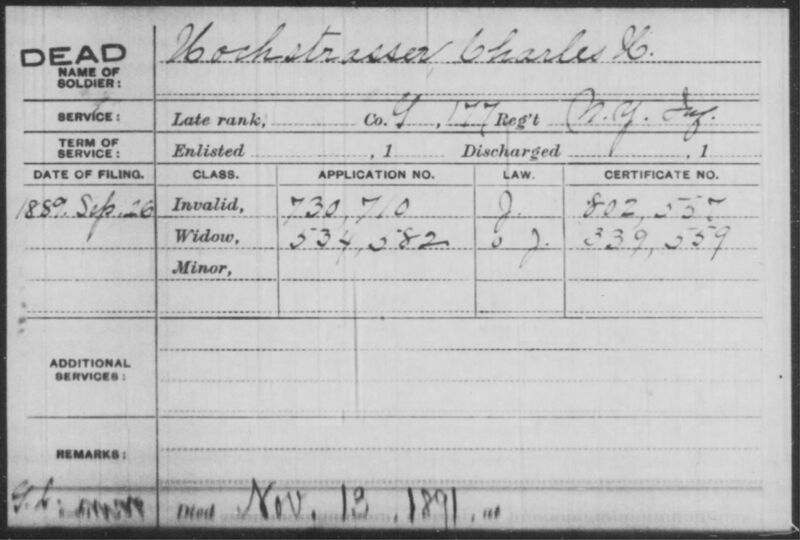 DEAD Hochstrasser, Charles H.
NAME OF
SOLDIER:
SERVICE: Late rank, Co. G, 177 Reg't N.Y. Inf.
TERM OF
SERVICE: Enlisted , 1 Discharged , 1
DATE OF FILING. CLASS. APPLICATION NO. LAW. CERTIFICATE NO.
1889. Sep. 26 Invalid, 730,710 J. 802,557
Widow, 534,582 J. 339,559
Minor,
ADDITIONAL
SERVICES:
REMARKS:
Died Nov. 13, 1891, at